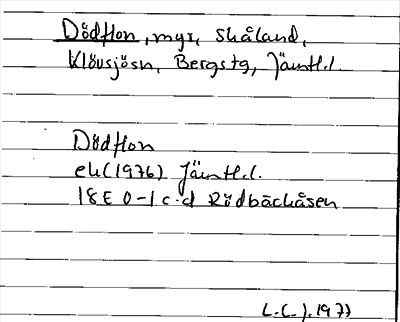 Dödflon, myr, Skåland,
Klövsjösn, Bergstg, Jämtl.l.
Dödflon
ek(1976) Jämtl.l.
18E 0-1 c-d Rödbäckåsen
L.L.J. 1977